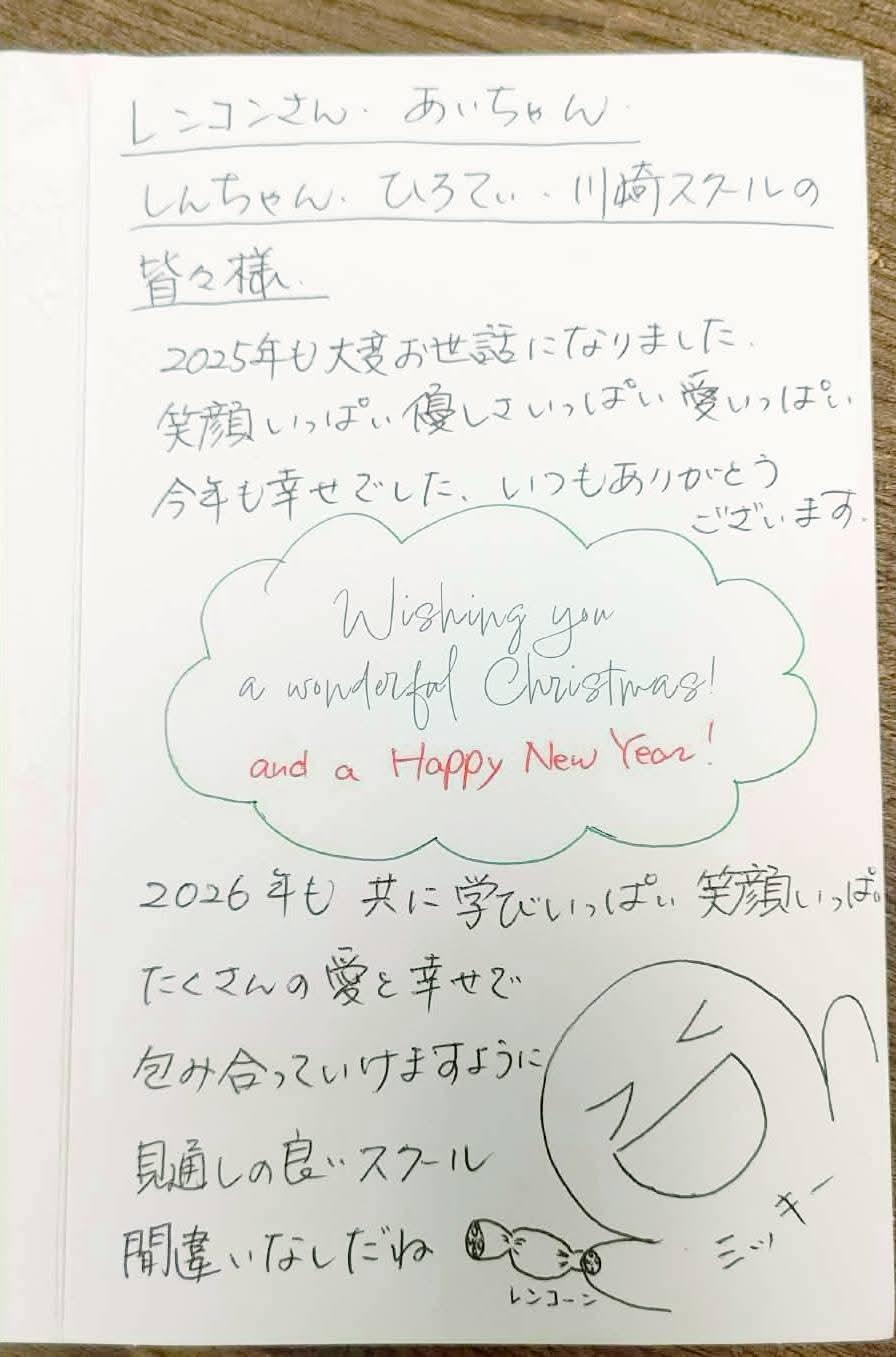 レンコンさん. あいちゃん.
しんちゃん. ひろてぃ. 川崎スクールの
皆々様.
2025年も大変お世話になりました.
笑顔いっぱい優しさいっぱい愛いっぱい
今年も幸せでした、いつもありがとう
ございます.
Wishing you
a wonderful Christmas!
and a Happy New Year!
2026年も 共に学びいっぱい 笑顔いっぱい
たくさんの愛と幸せで
包み合っていけますように
見通しの良いスクール
間違いなしだね
ミッキー
レンコーン